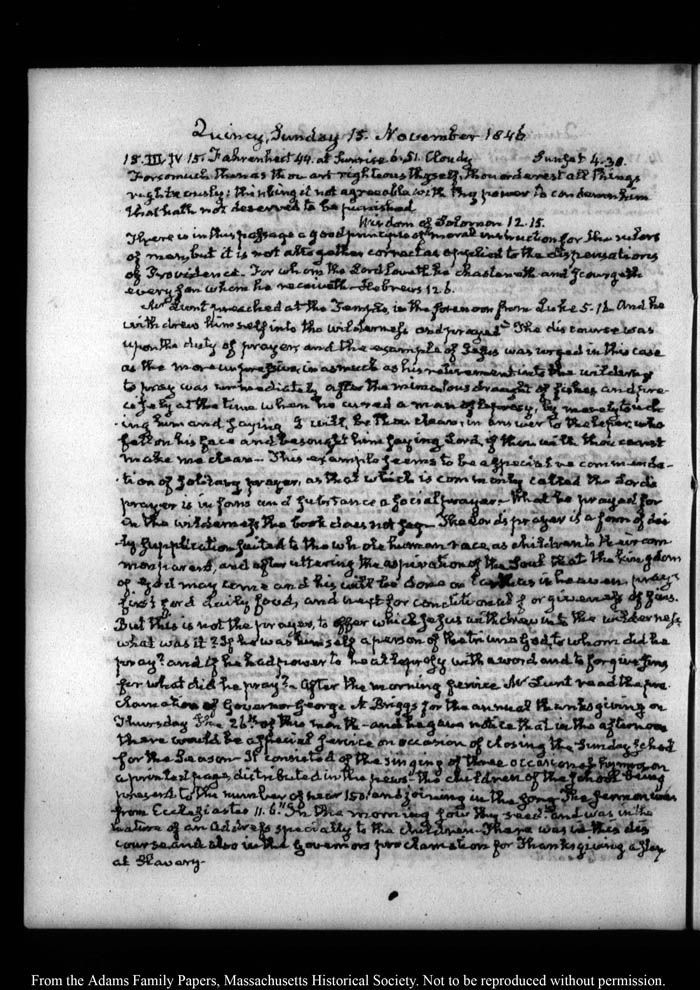 Quincy, Sunday 15. November 1846
15. III. IV 15. Fahrenheit 44. at Sunrise 6.51. Cloudy Sunset 4.30.
Forsomuch then as thou art righteous thyself, thou orderest all things
righteously: thinking it not agreeable with thy power to condemn him
that hath not deserved to be punished
Wisdom of Solomon 12.15.
There is in this passage a good principle of moral instruction for the rulers
of men, but it is not altogether correct as applied to the dispensations
of Providence. For whom the Lord loveth he chasteneth and scourgeth
every son whom he receiveth. Hebrews 12.6.
Mr Lunt preached at the Temple, in the forenoon from Luke 5.16. And he
withdrew himself into the wilderness and prayed. The discourse was
upon the duty of prayer, and the example of Jesus was urged in this case
as the more impressive, in as much as his retirement into the wilderness
to pray was immediately after the miraculous draught of fishes and pre-
cisely at the time when he cured a man of leprosy, by merely touch
ing him and saying I will, be thou clean, in answer to the leper, who
fell on his face and besought him saying Lord, if thou wilt thou canst
make me clean. This example seems to be a special recommenda-
tion of solitary prayer, as that which is commonly called the Lord's
prayer is in form and substance a social prayer. What he prayed for
in the wilderness the book does not say. The Lord's prayer is a form of dai
ly supplication suited to the whole human race, as children to their com
mon parent, and after uttering the aspiration of the Soul that the kingdom
of God may come and his will be done on Earth as in heaven, prays
first for daily food, and next for conditional forgiveness of sins.
But this is not the prayer, to offer which Jesus withdrew into the wilderness
what was it? If he was himself a person of the triune God, to whom did he
pray? and if he had power to heal leprosy with a word and to forgive sins
for what did he pray?- After the morning service Mr Lunt read the pro
clamation of Governor George N. Briggs for the annual thanksgiving on
Thursday the 26th of this month- and he gave notice that in the afternoon
there would be a special service on occasion of closing the Sunday school
for the Season- It consisted of the singing of three occasional hymns, on
a printed page, distributed in the pews- the children of the School being
present to the number of near 150. and joining in the song. The Sermon was
from Ecclesiastes 11.6. In the morning sow thy seed- and was in the
nature of an Address specially to the children- There was in this dis
course, and also in the Governor's proclamation for Thanksgiving a slap
at Slavery-
From the Adams Family Papers, Massachusetts Historical Society. Not to be reproduced without permission.